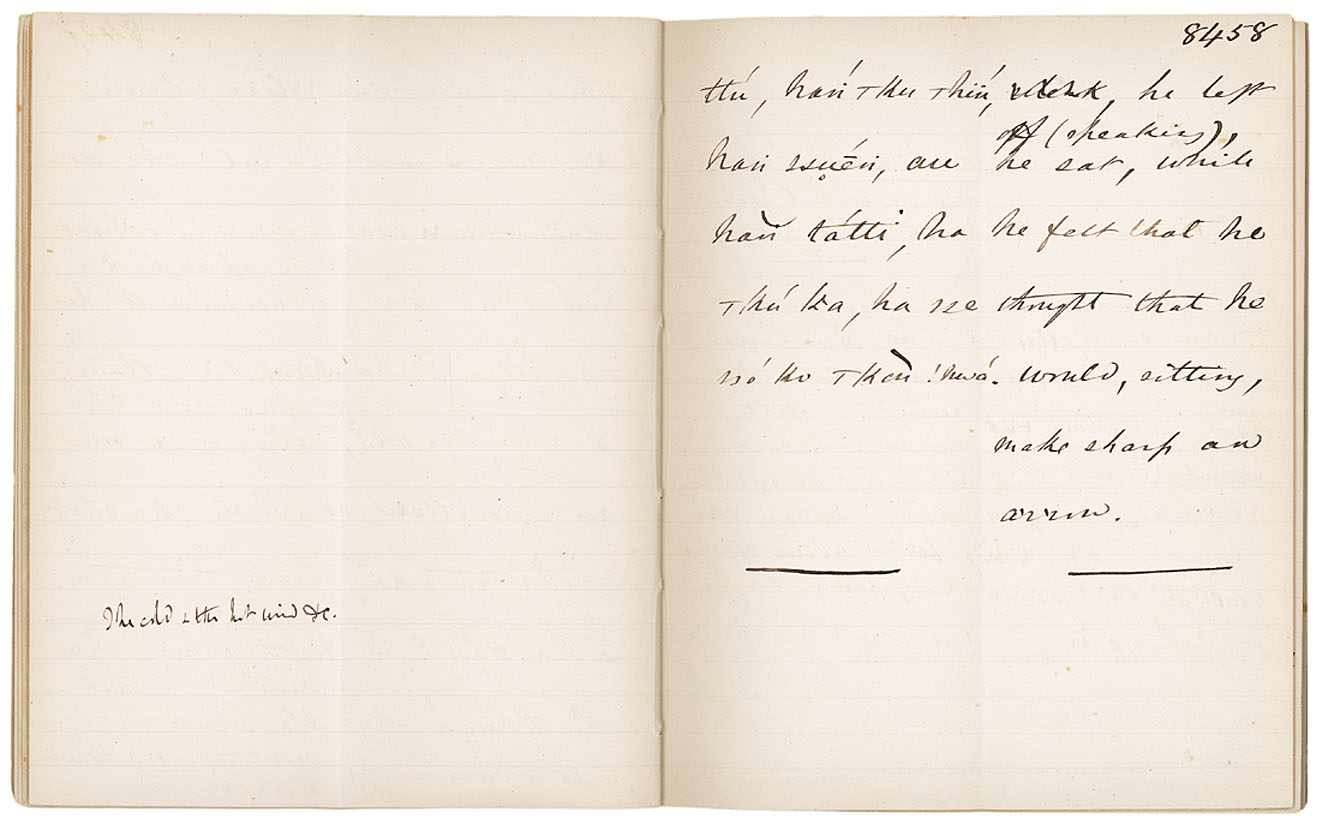 The cold & the hot wind &c.
8458
he left
off (speaking),
haṅ ssụēṅ, au he sat, while
haṅ tátti, ha he felt that he
ha sse thought that he
ssó ko !nwá. would, sitting,
make sharp an
arrow.